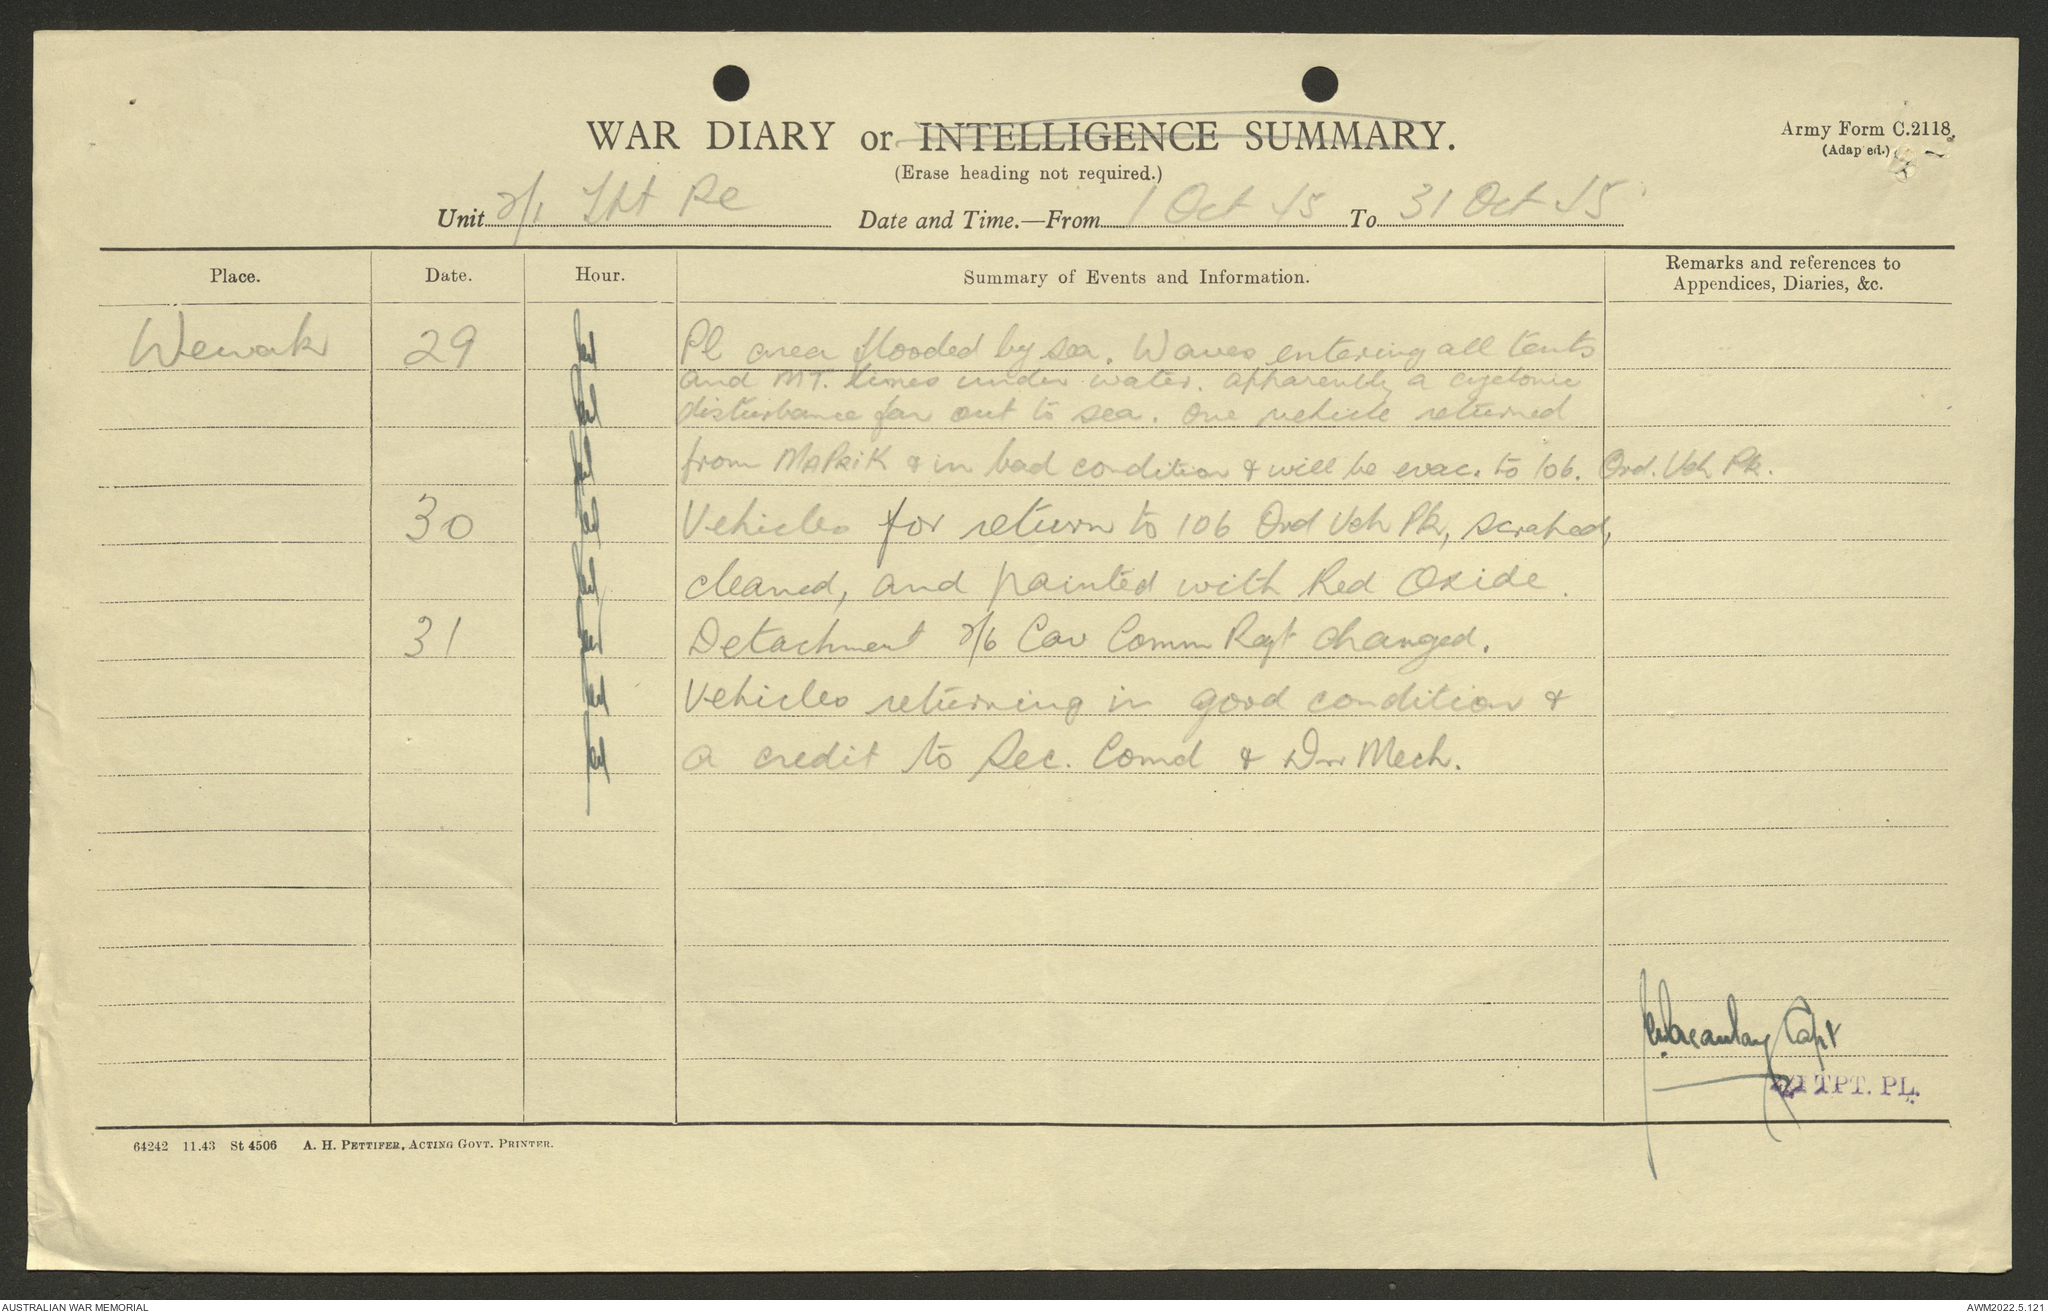 WAR DIARY or INTELLIGENCE SUMMARY.
Army Form C.2118.
(Adapted.)
(Erase heading not required.)
Unit 2/1 Tpt Pl Date and Time.—From 1 Oct 45 To 31 Oct 45
Place. Date. Hour. Summary of Events and Information. Remarks and references to Appendices, Diaries, &c.
Wewak 29 Pl area flooded by sea. Waves entering all tents
and MT. lines under water. Apparently a cyclonic
disturbance far out to sea. One vehicle returned
from MAPRIK & in bad condition & will be evac. to 106. Ord. Veh Pk.
30 Vehicles for return to 106 Ord Veh Pk, scraped,
cleaned, and painted with Red Oxide.
31 Detachment 2/6 Cav Comm Regt changed.
Vehicles returning in good condition &
a credit to Sec. Comd & Dvr Mech.
Macaulay Capt
2/1 TPT. PL.
64242 11.43 St 4506 A. H. PETTIFER, ACTING GOVT. PRINTER.
AUSTRALIAN WAR MEMORIAL
AWM2022.5.121